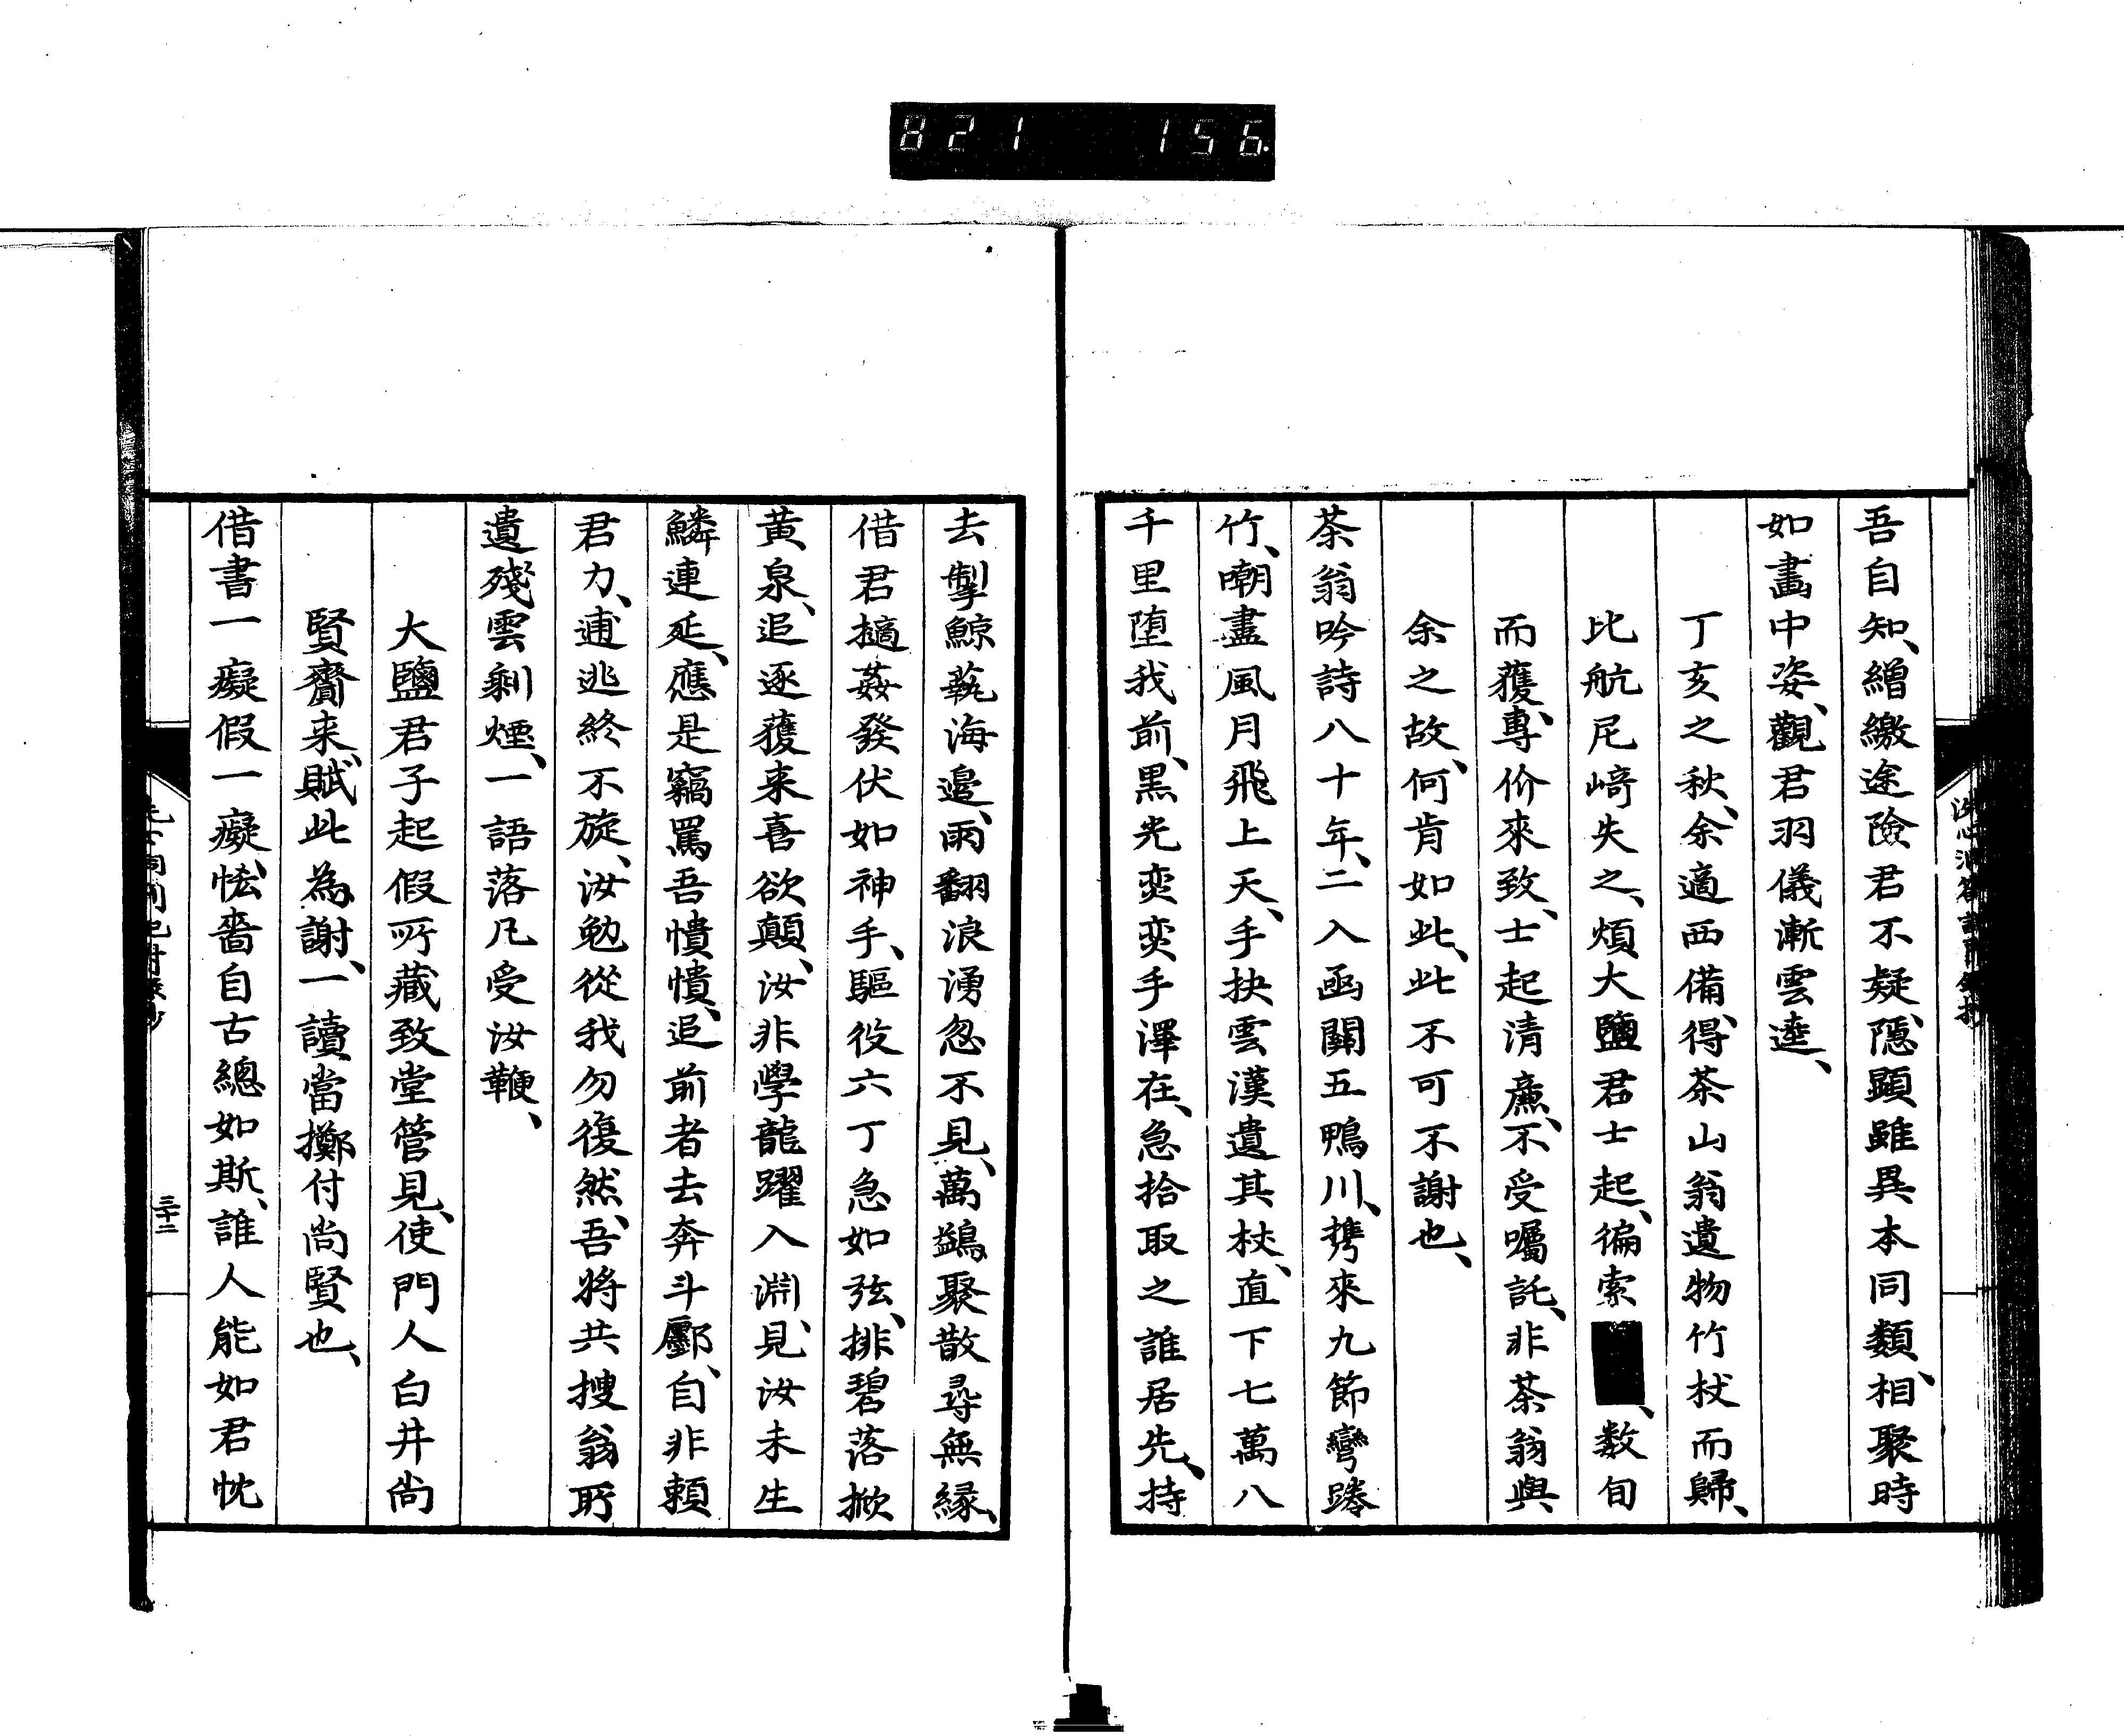 821 156.
吾自知、繒繳途險君不疑、隱顯雖異本同類、相聚時
如畫中姿、觀君羽儀漸雲逵、
丁亥之秋、余適西備、得茶山翁遺物竹杖而歸、
比航尼﨑失之、煩大鹽君士起、徧索■、数旬
而獲、專价來致、士起清廉、不受囑託、非茶翁與
余之故、何肯如此、此不可不謝也、
茶翁吟詩八十年、二入函關五鴨川、携來九節彎蹐
竹、嘲盡風月飛上天、手抉雲漢遺其杖、直下七萬八
千里堕我前、黒光奕奕手澤在、急拾取之誰居先、持
去掣鯨蓺海邉、雨翻浪湧忽不見、萬鷁聚散尋無縁、
借君擿姦發伏如神手、驅役六丁急如弦、排碧落掀
黄泉、追逐獲来喜欲顛、汝非學龍躍入淵、見汝未生
鱗連延、應是竊罵吾憒憒、追前者去奔斗酈、自非頼
君力、逋逃終不旋、汝勉從我勿復然、吾将共搜翁所
遺殘雲剰煙、一語落凡受汝鞭、
大鹽君子起假所藏致堂管見、使門人白井尚
賢齎来、賦此為謝、一讀當擲付尚賢也、
借書一癡假一癡、恡嗇自古總如斯、誰人能如君忱
三十二